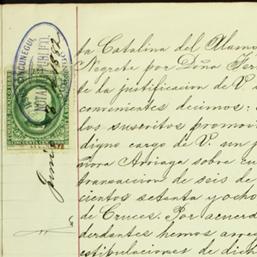 ta Catalina del Alamo
Negrete por Doña Fer
te la justificacion de V
convenientes decimos: 
los suscritos promovi
digno cargo de V. un j
nora Arriaga sobre cu
transaccion de seis de
cientos setenta y ocho
de Cruces. Por acuerdo
dordantes hemos arreg
estipulaciones de dich
Junio